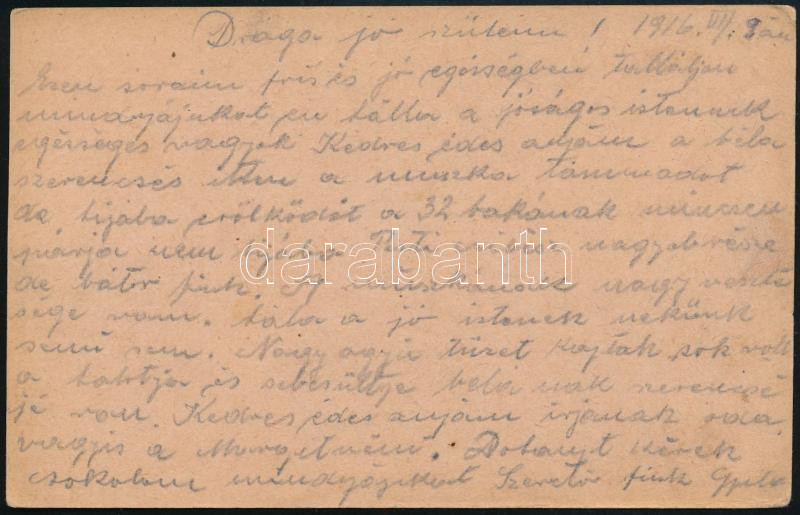 Drága jó szüleim! 1916. VII/9én
Ezen soraim fris és jó egésségben tallálják
mindnyájukat en hálla a jóságos istennek
egésséges vagyok Kedves édes anyám a béla
szerencsés itten a muszka támmadot
de hijába erölködöt a 32 bakának nincsen
párja nem hijába Pesti nagyobrésze
de bátor fiuk. muszkának nagy veszté
sége vam. hála a jó istenek nekünk
semi sem. Nagy agyú tüzet kaptak sok volt
a halotja és sebesültje bélának szerencsé
jé van. Kedves édes anyám irjanak oda
vagyis a Margitnéni. Dohanyt kérek
csokolom mindnyájikat Szerető fiuk Gyula
darabanth